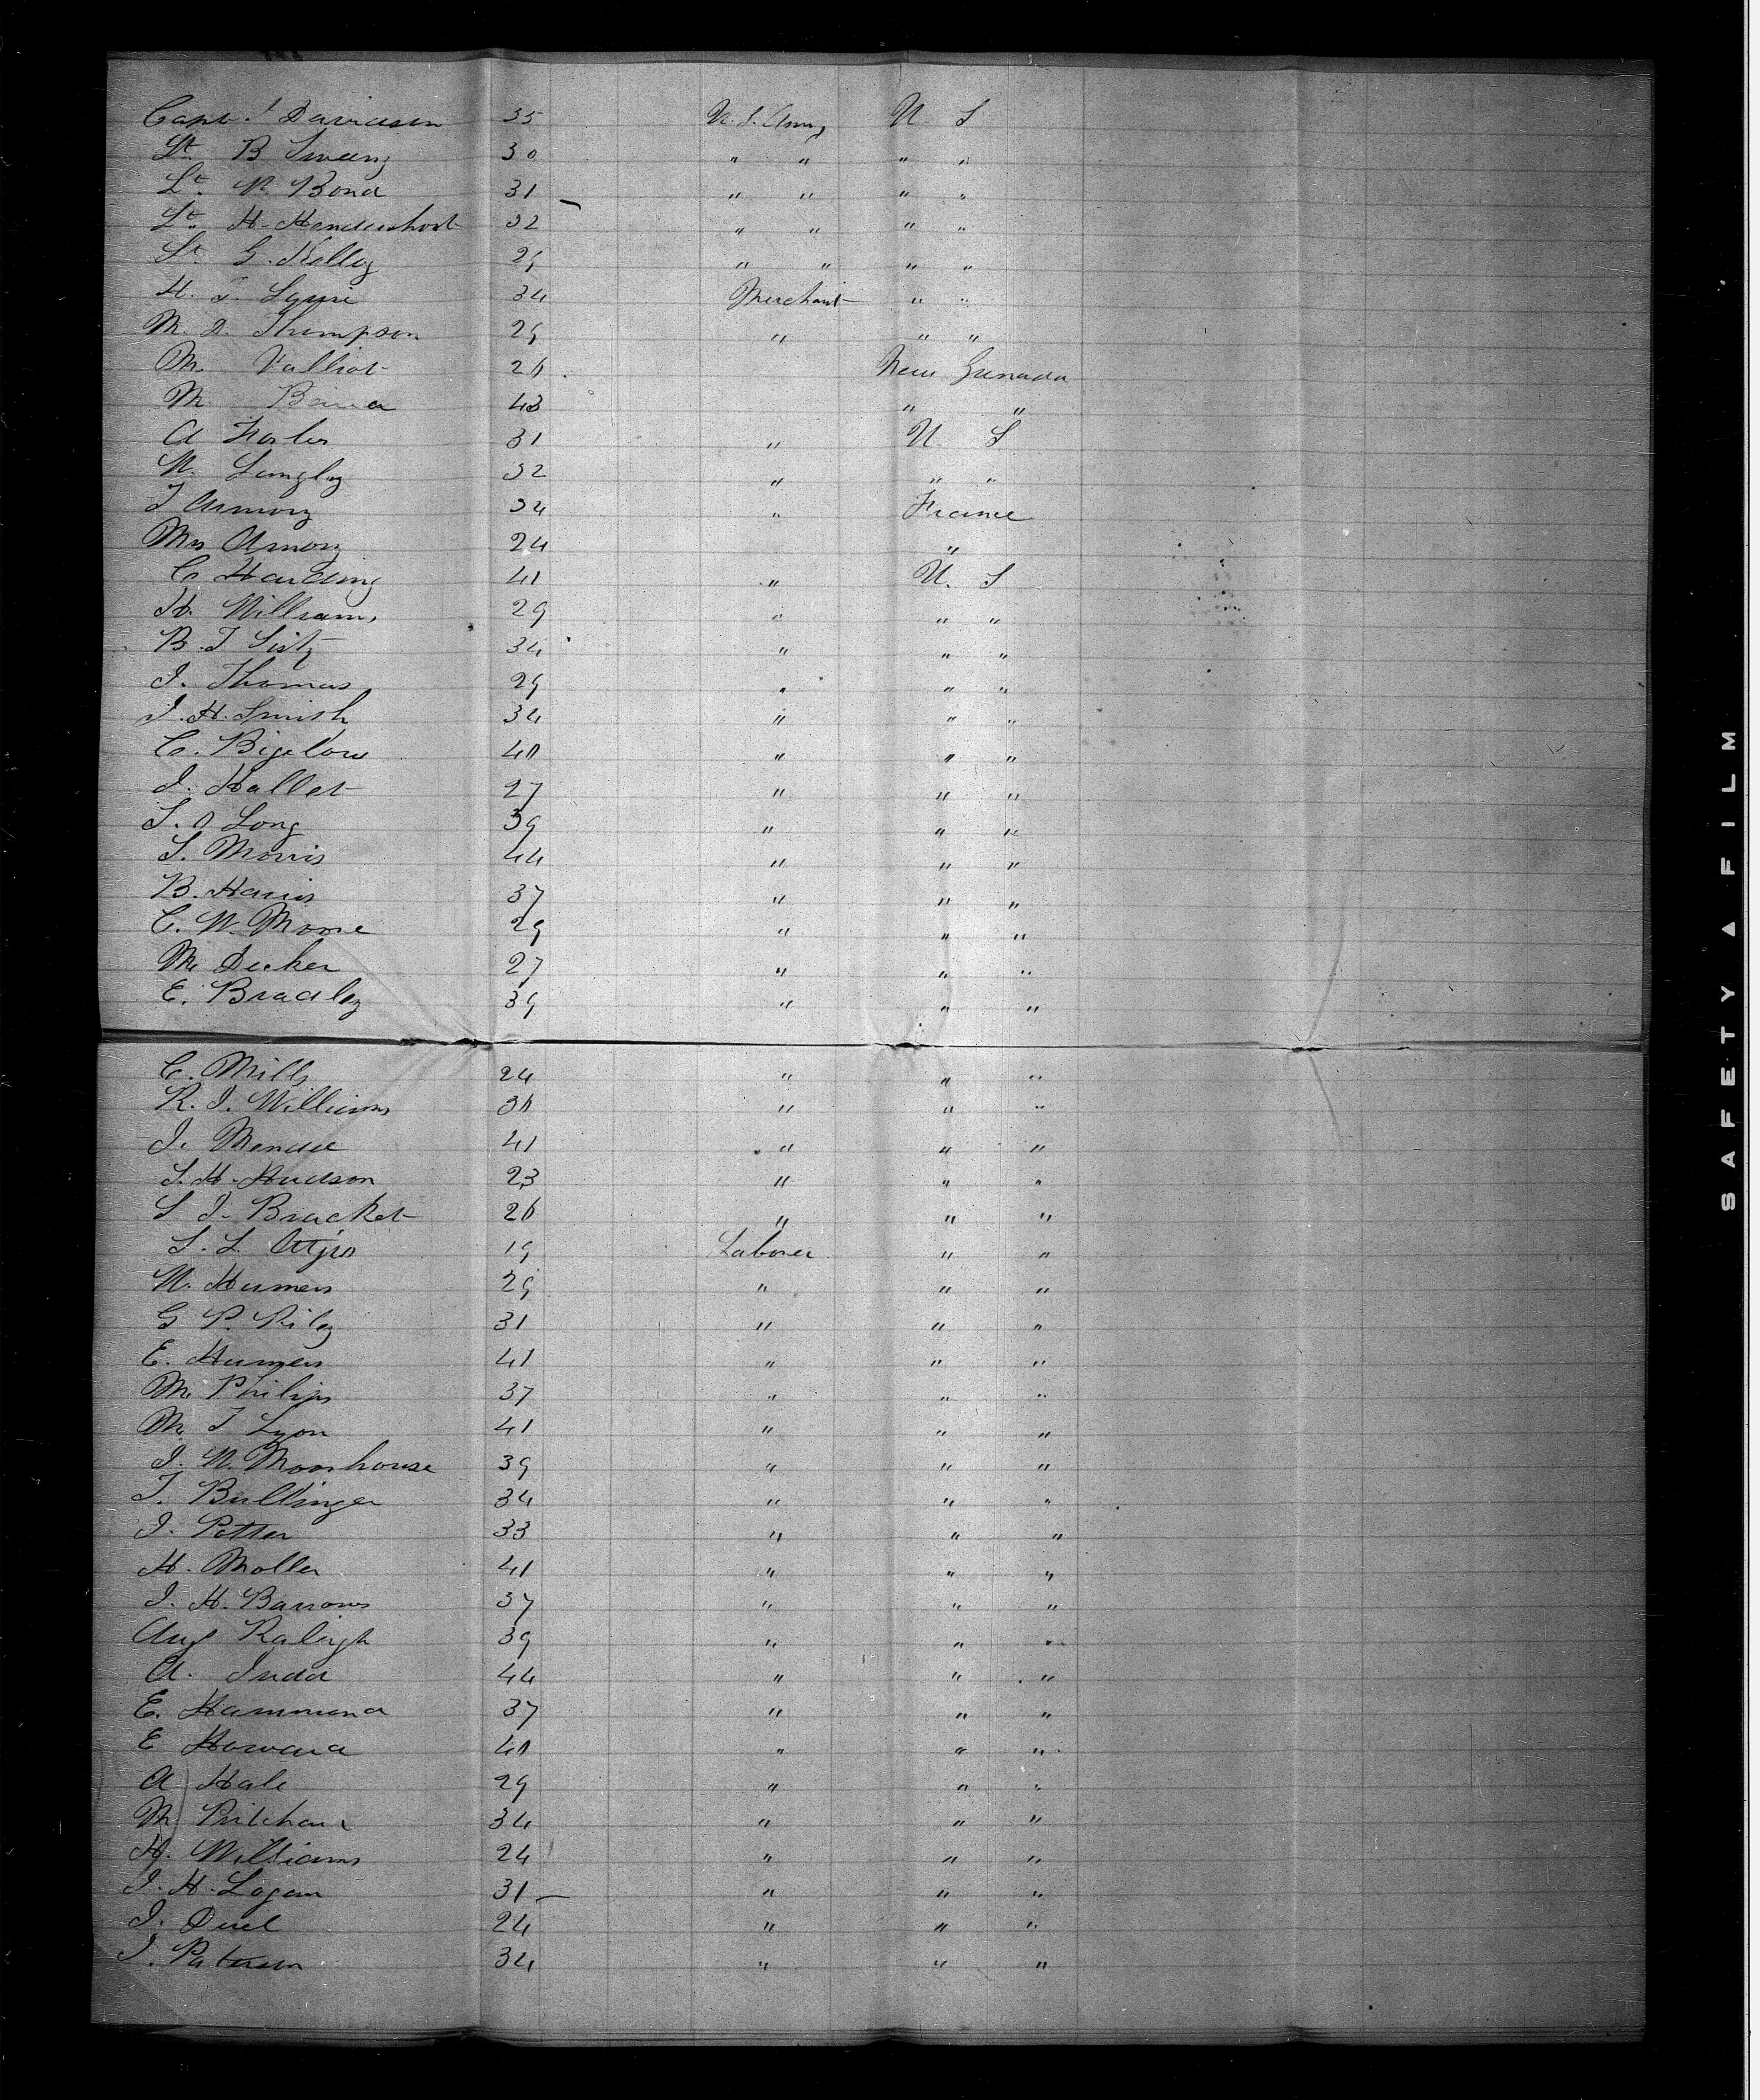 Capt. J Davidson 35 U.S. Army U. S
Lt. B Sweeny 30 " " " "
Lt. W. Bond 31 " " " "
Lt. H. Hendershott 32 " " " "
Lt. G. Kelley 29 " " " "
H. T. 34 Merchant " "
M. D. Thompson 29 " " "
M. Valliot 26 New Grenada
M 43 " "
A 31 " U. S
W. Langley 32 " " "
T Armory 34 " France
Mrs Armory 24 "
C Harding 41 " U. S
H. Williams 29 " " "
B. T 34 " " "
J. Thomas 29 " " "
J. H. Smith 34 " " "
C. Bigelow 40 " " "
J. Hallet 27 " " "
S. Long 39 " " "
S. Morris 44 " " "
B. Harris 37 " " "
C. W. Moore 29 " " "
M. Decker 27 " " "
E. Bradley 39 " " "
C. Mills 24 " " "
R. J. Williams 30 " " "
J. 41 " " "
S. H. Hudson 23 " " "
S J. Bracket 26 " " "
S. L. 19 Laborer " "
W. Humers 29 " " "
G P. Riley 31 " " "
E. Humers 41 " " "
M. Philips 37 " " "
M. T Lyon 41 " " "
J. W. Moorhouse 39 " " "
T. Bullinger 34 " " "
J. Potter 33 " " "
H. Moller 41 " " "
J. H. Barrows 37 " " "
Aug Raleigh 39 " " "
A. Judd 44 " " "
E. Hammond 37 " " "
E Howard 40 " " "
A Hale 29 " " "
M Pritchard 34 " " "
H. Williams 24 " " "
J. H. Logan 31 " " "
J. Duel 24 " " "
J. Paterson 34 " " "
SAFETY ▲ FILM